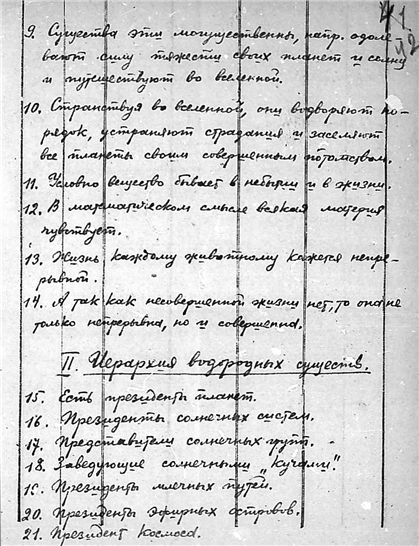 41
42
9. Существа эти могущественны, напр. одоле-
вают силу тяжести своих планет и солнц
и путешествуют во вселенной.
10. Странствуя во вселенной, они водворяют по-
рядок, устраняют страдания и заселяют
все планеты своим совершенным потомством.
11. Условно вещество бывает в небытии и в жизни.
12. В математическом смысле всякая материя
чувствует.
13. Жизнь каждому животному кажется непре-
рывной.
14. А так как несовершенной жизни нет, то она не
только непрерывна, но и совершенна.
II. Иерархия водородных существ.
15. Есть президенты планет.
16. Президенты солнечных систем.
17. Представители солнечных групп.
18. Заведующие солнечными „кучами".
19. Президенты млечных путей.
20. Президенты эфирных островов.
21. Президент Космоса.